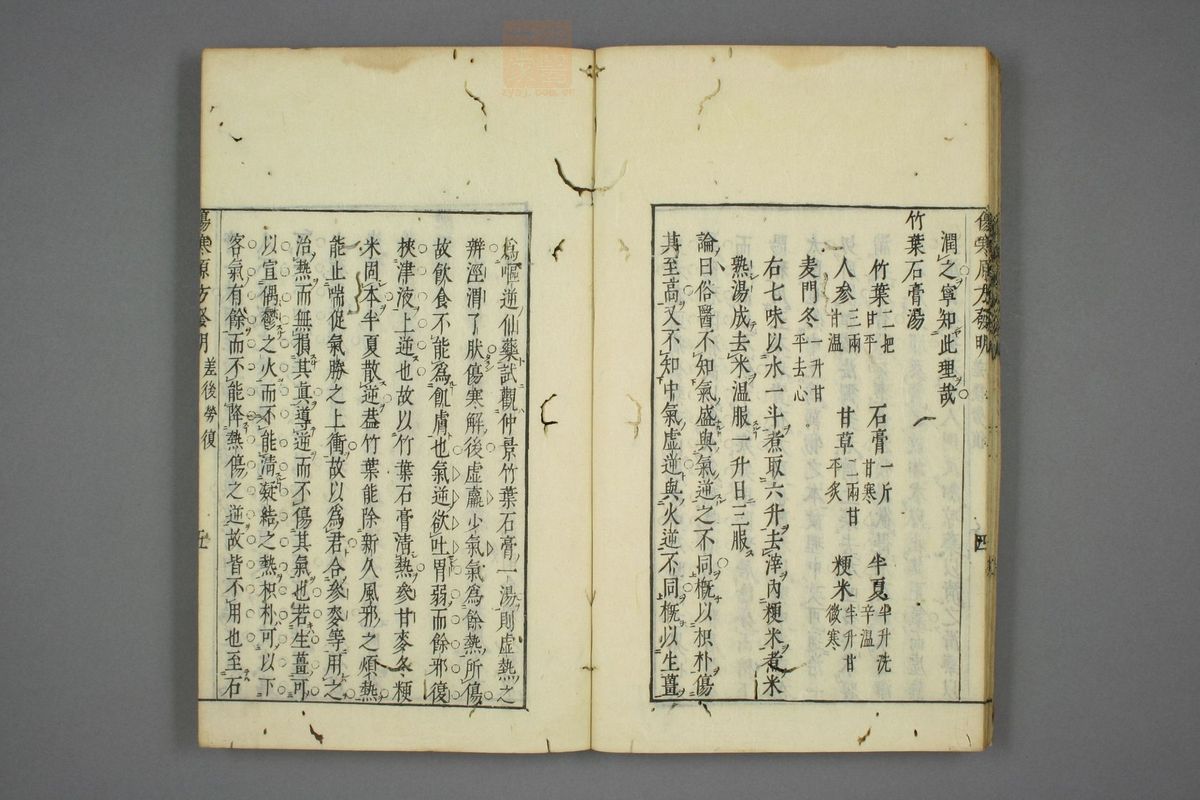 傷寒原方發明
四
潤之寧知此理哉
竹葉石膏湯
竹葉二把甘平 石膏一斤甘寒 半夏半升洗辛温
人参三兩甘温 甘草二兩甘平炙 粳米半升甘微寒
麦門冬一升甘平去心
右七味以水一斗煮取六升去滓內粳米煮米
熟湯成去米温服一升日三服
論曰俗醫不知氣盛與氣逆之不同概以枳朴傷
其至高又不知中氣虚逆與火逆不同概以生薑
爲嘔逆仙藥試觀仲景竹葉石膏一湯則虚熱之
辨涇渭了肰傷寒解後虚羸少氣氣爲餘熱所傷
故飲食不能爲飢膚也氣逆欲吐胃弱而餘邪復
挾津液上逆也故以竹葉石膏清熱參甘麥冬粳
米固本半夏散逆葢竹葉能除新久風邪之煩熱
能止喘促氣勝之上衝故以爲君合參麥等用之
治熱而無損其真導逆而不傷其氣也若生薑可
以宣偶鬱之火而不能清凝結之熱枳朴可以下
客氣有餘而不能降熱傷之逆故皆不用也至石
傷寒原方發明 差後勞復
五